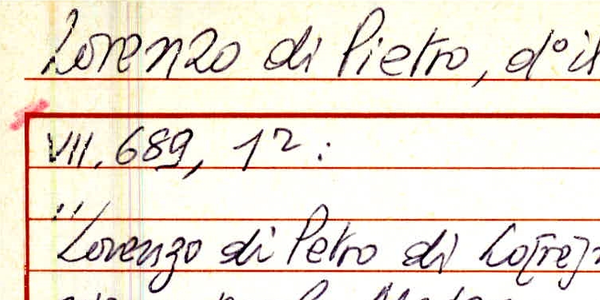 Lorenzo di Pietro, d° il
VII. 689, 1r :
"Lorenzo di Petro di Lo[re]n